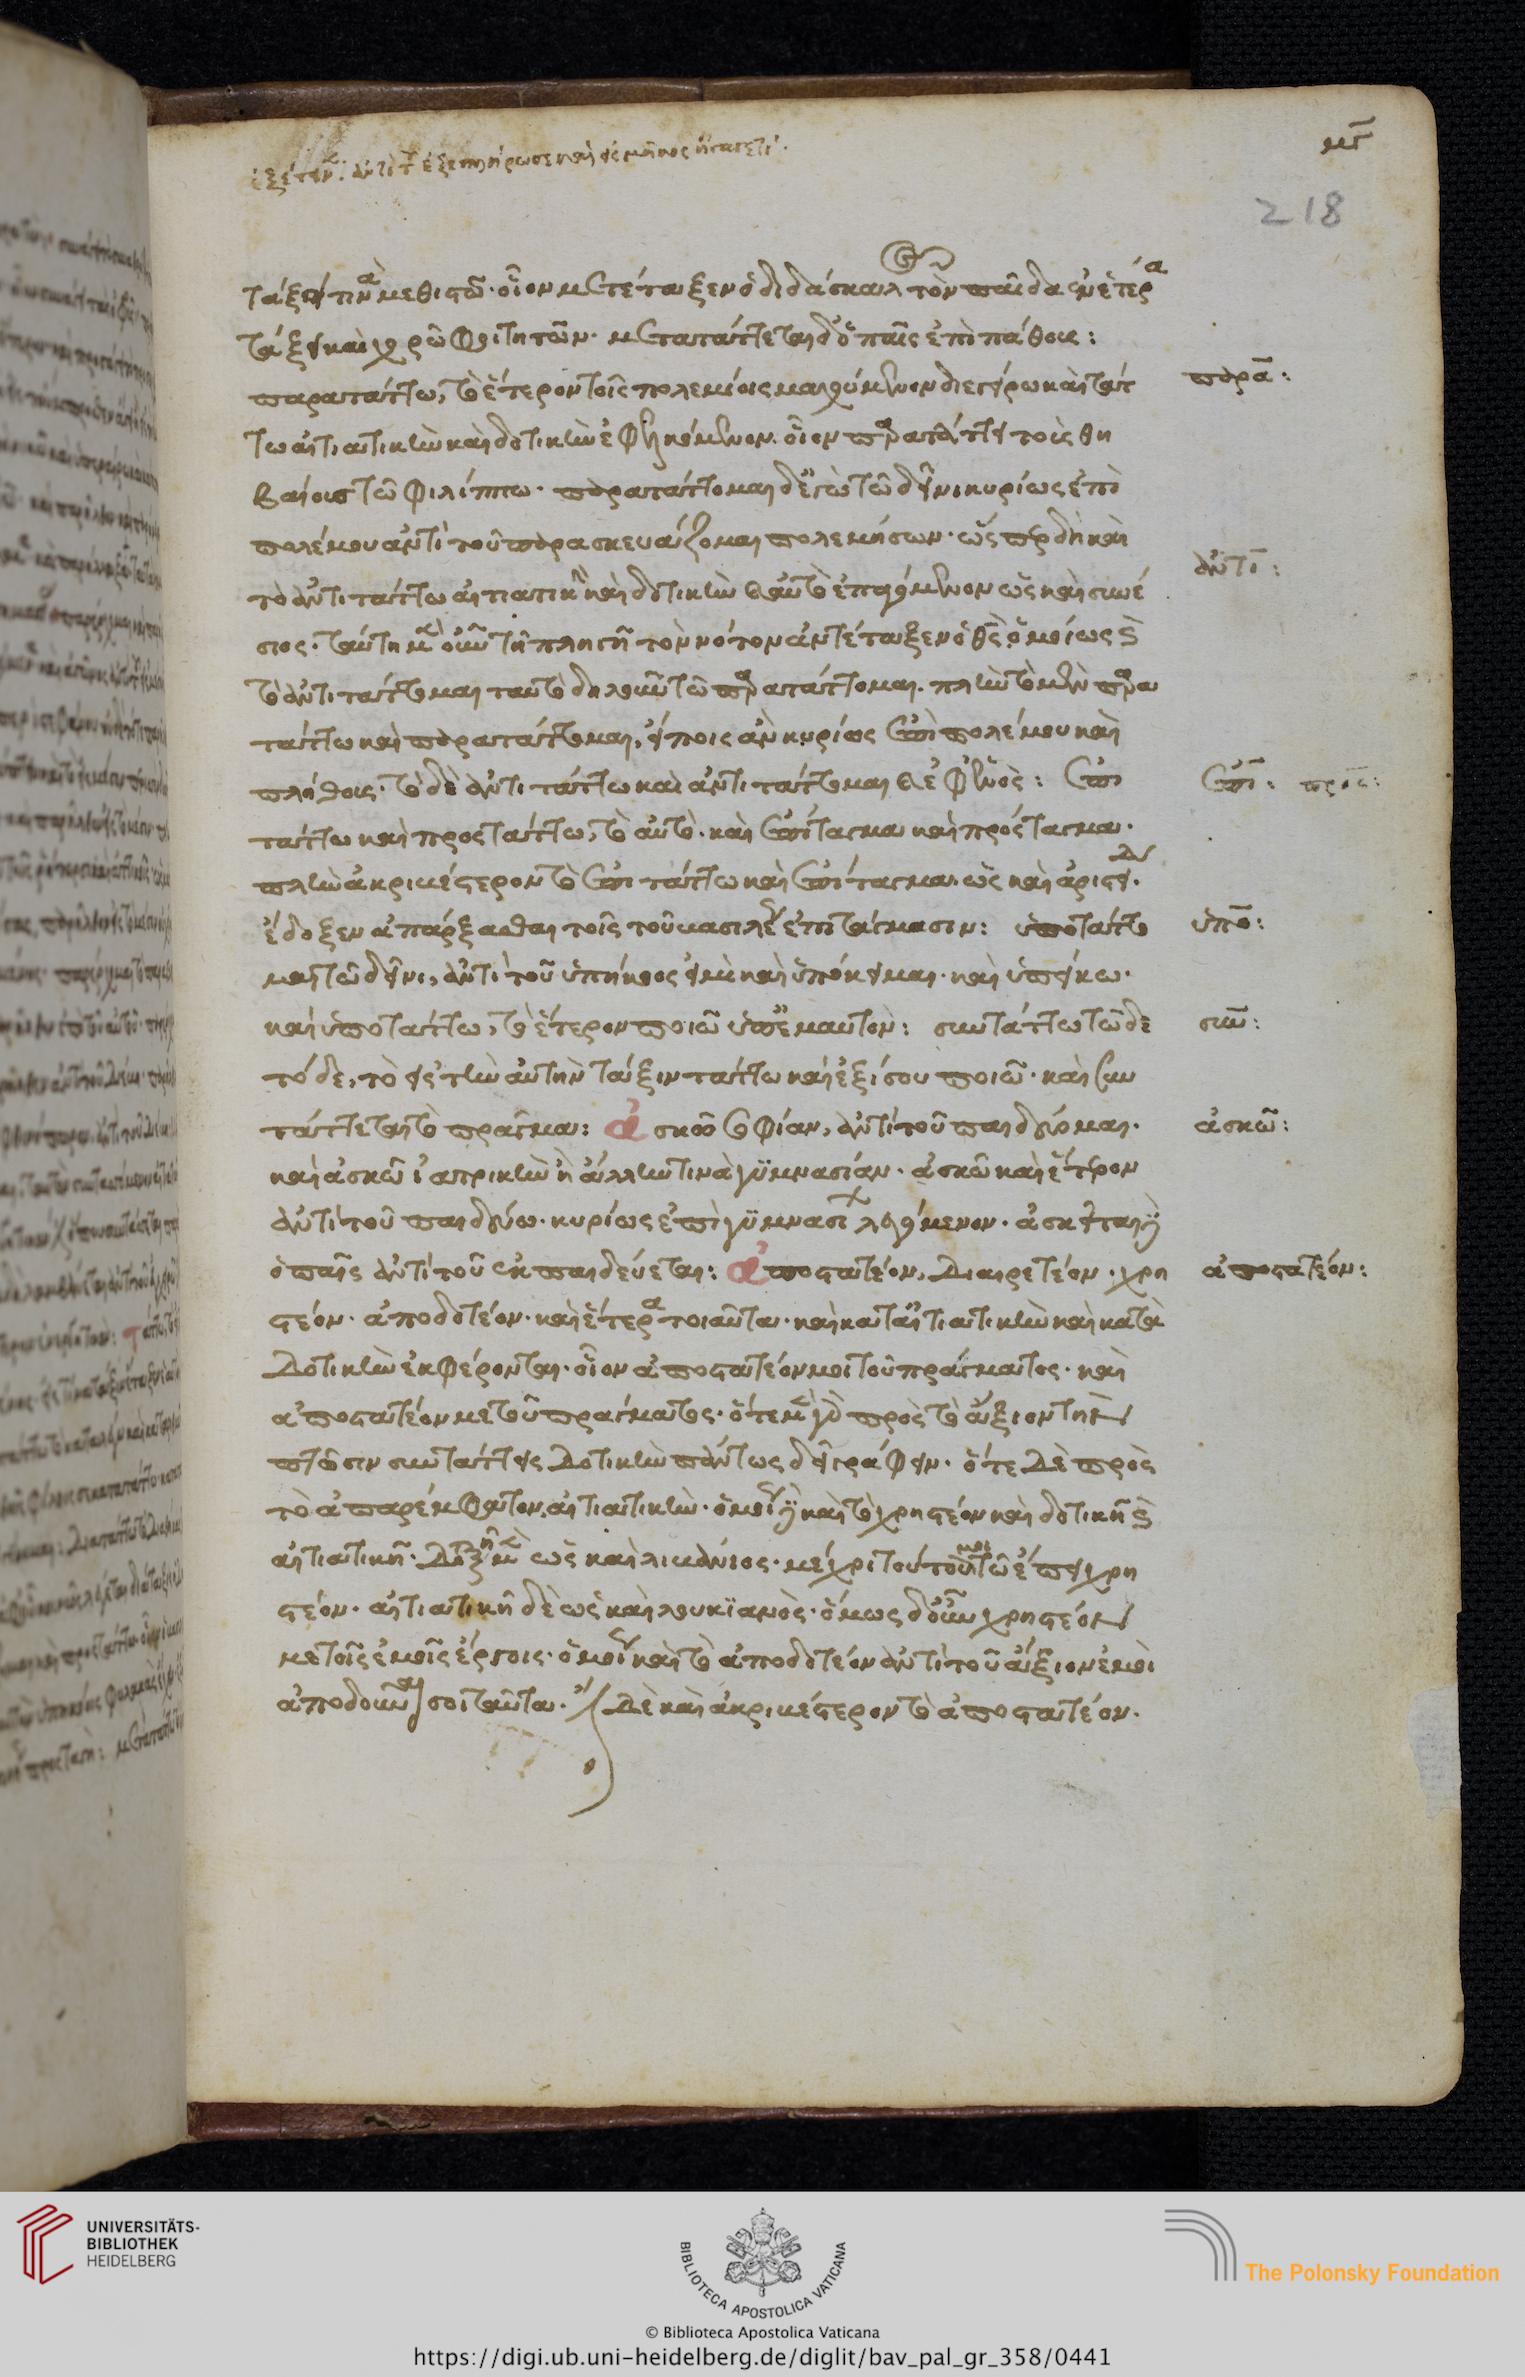 ἐξέτεινεν: ἀντὶ τοῦ ἐξεπλήρωσε καὶ εἰς μῆκος
μγ
218
τάξει τινὰ μεθιστῶ· οἷον μετέταξεν ὁ διδάσκαλος τὸν παῖδα ἐν ἑτέρα
τάξει καὶ χορῶ φοιτητῶν· μετατάττεται δ' ὁ παῖς ἐπὶ πάθους:
παρατάττω, τὸ ἕτερον τοῖς πολεμίοις μαχούμενον διεγείρω καὶ τάτ
παρα:
τω αἰτιατικὴν καὶ δοτικὴν ἐφελκόμενον. οἷον παρατάττει τοὺς θη
βαίους τῶ φιλίππω· παρατάττομαι δ' ἐγὼ τῶ δεῖνι κυρίως ἐπὶ
πολέμου ἀντὶ τοῦ παρασκευάζομαι πολεμήσων· ὥσπερ δὴ καὶ
τὸ ἀντιτάττω αἰτιατικὴν καὶ δοτικὴν καὶ αὐτὸ ἐπαγόμενον ὡς καὶ συνέ
ἀντι:
σιος· ταύτη μὲν οὖν τῆ πληγῆ τὸν νότον ἀντέταξεν ὁ θεός· ὁμοίως καὶ
τὸ ἀντιτάττομαι ταυτὸ δηλοῦν τῶ παρατάττομαι. πλὴν τὸ μὲν παρα
τάττω καὶ παρατάττομαι, εἴποις ἂν κυρίως ἐπὶ πολέμου καὶ
πλήθους· τὸ δὲ ἀντιτάττω καὶ ἀντιτάττομαι καὶ ἐφ' ἑνός: ἐπι
ἐπι: προς:
τάττω καὶ προστάττω, τὸ αὐτό· καὶ ἐπίταγμα καὶ πρόσταγμα·
πλὴν ἀκριβέστερον τὸ ἐπιτάττω καὶ ἐπίταγμα· ὡς καὶ ἀριστείδης·
ἔδοξεν ἀπάρξασθαι τοῖς τοῦ βασιλέως ἐπιτάγμασιν: ὑποτάττο
ὑπο:
μαι τῶ δεῖνι, ἀντὶ τοῦ ὑπήκοος εἰμὶ καὶ ὑπόκειμαι· καὶ ὑπείκω·
καὶ ὑποτάττω, τὸ ἕτερον ποιῶ ὑπ' ἐμαυτόν: συντάττω τῶδε
συν:
τόδε, τὸ εἰς τὴν αὐτὴν τάξιν τάττω καὶ ἐξίσου ποιῶ· καὶ συν
τάττεται τὸ πρᾶγμα: ἀσκῶ σοφίαν, ἀντὶ τοῦ παιδεύομαι·
ἀσκῶ:
καὶ ἀσκῶ ἰατρικὴν ἢ ἄλλην τινὰ γυμνασίαν· ἀσκῶ καὶ ἕτερον
ἀντὶ τοῦ παιδεύω· κυρίως ἐπὶ γυμνασι λεγόμενον· ἀσκεῖται
ὁ παῖς ἀντὶ τοῦ ἐκπαιδεύεται: ἀποστατέον, διαιρετέον· χρη
ἀποστατέον:
στέον· ἀποδοτέον· καὶ ἕτερα τοιαῦτα· καὶ κατ' αἰτιατικὴν καὶ κατὰ
δοτικὴν ἐκφέρονται· οἷον ἀποστατέον μοι τοῦ πράγματος· καὶ
ἀποστατέον με τοῦ πράγματος· ὅτε μὲν γὰρ πρὸς τὸ ἄξιον τὴν
πτῶσιν συντάττεις δοτικὴν πάντως δεῖ γράφειν· ὅτε δὲ πρὸς
τὸ ἀπαρέμφατον, αἰτιατικήν· ὁμοίως καὶ τὸ χρηστέον καὶ δοτικῆ καὶ
αἰτιατικῆ· δοτικῆ μὲν ὡς καὶ λιβάνιος· μέχρι τούτου μοι τῶ ἔπει χρη
στέον· αἰτιατικῆ δὲ ὡς καὶ λουκϊανός· ὅμως δ' οὖν χρηστέον
με τοῖς ἐμοῖς ἔργοις· ὁμοίως καὶ τὸ ἀποδοτέον ἀντὶ τοῦ ἄξιον ἐμοὶ
ἀποδοῦναι σοι ταῦτα· δὲ καὶ ἀκριβέστερον τὸ ἀποστατέον·
UNIVERSITÄTS-
BIBLIOTHEK
HEIDELBERG
BIBLIOTECA APOSTOLICA VATICANA
The Polonsky Foundation
© Biblioteca Apostolica Vaticana
https://digi.ub.uni-heidelberg.de/diglit/bav_pal_gr_358/0441